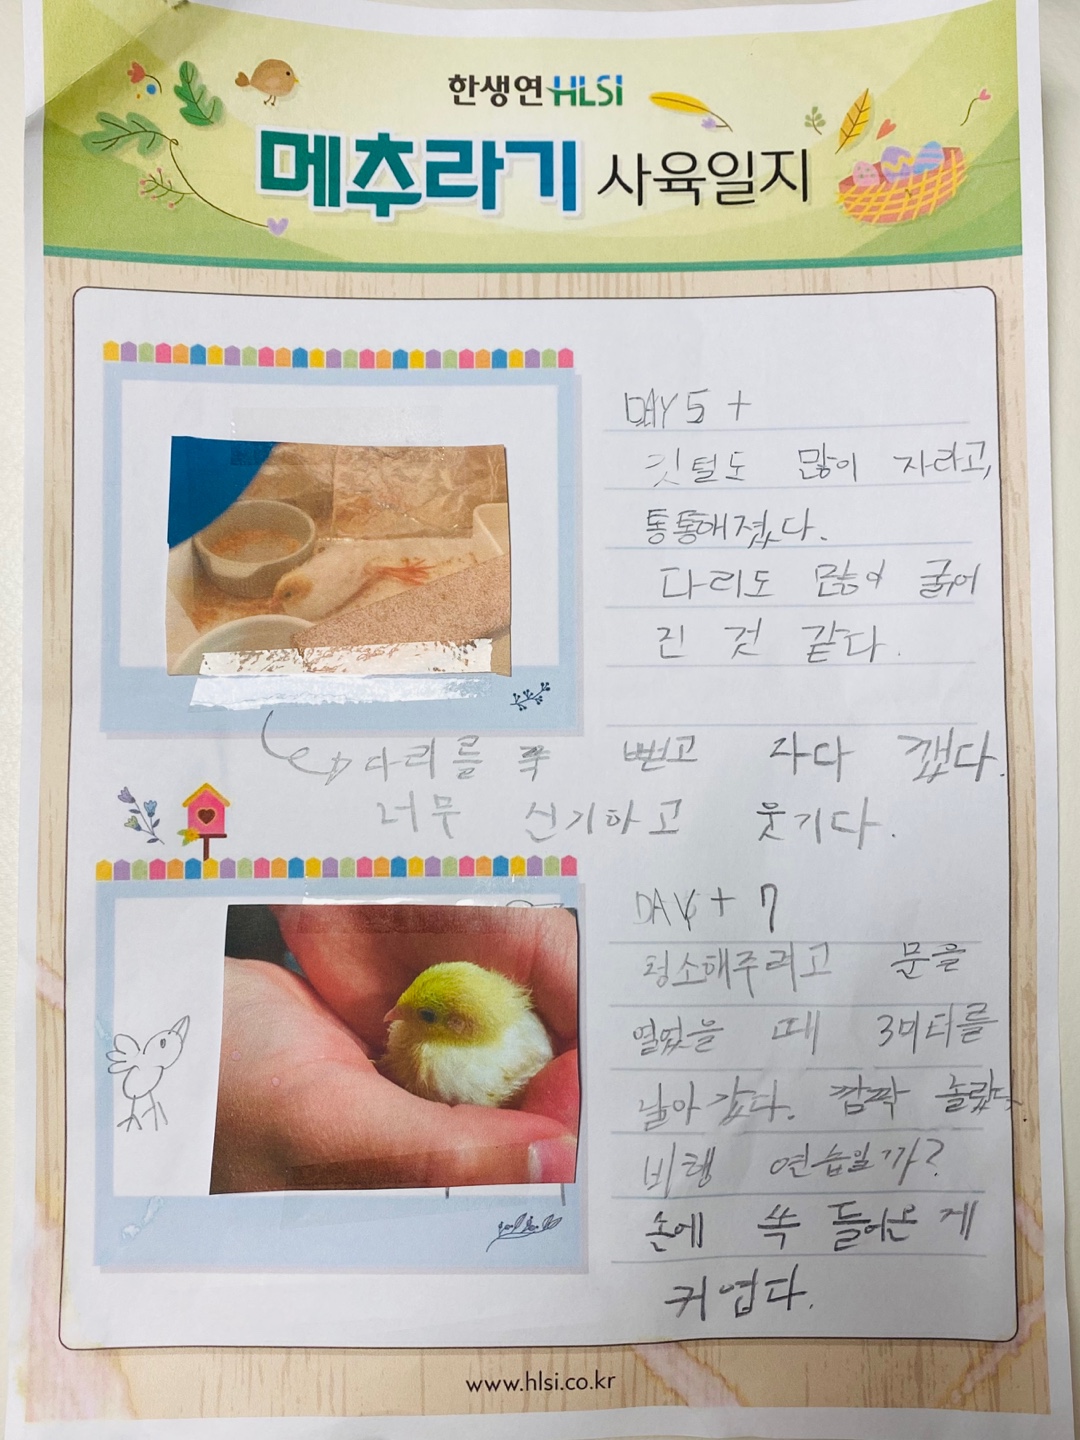 한생연 HLSI
메추라기 사육일지
DAY 5 +
깃털도 많이 자라고,
통통해졌다.
다리도 많이 굵어
진 것 같다.
다리를 쭉 뻗고 자다 깼다.
너무 신기하고 웃기다.
DAY + 7
청소해주려고 문을
열었을 때 3미터를
날아갔다. 깜짝 놀랐다.
비행 연습일까?
손에 쏙 들어온 게
커엽다.
www.hlsi.co.kr